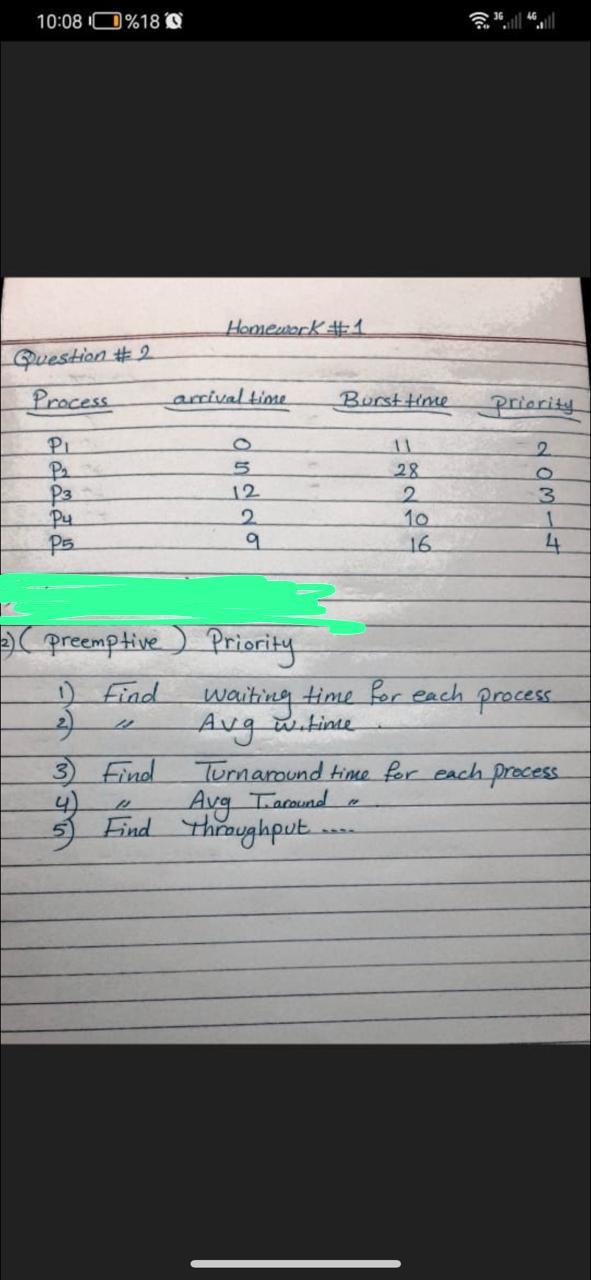 10:08 %18 3G 4G
Homework #1
Question # 2
Process arrival time Burst time priority
P1 0 11 2
P2 5 28 0
P3 12 2 3
P4 2 10 1
P5 9 16 4
2) ( preemptive ) Priority
1) Find waiting time for each process
2) " Avg w.time .
3) Find Turnaround time for each process
4) " Avg T.around "
5) Find throughput ....